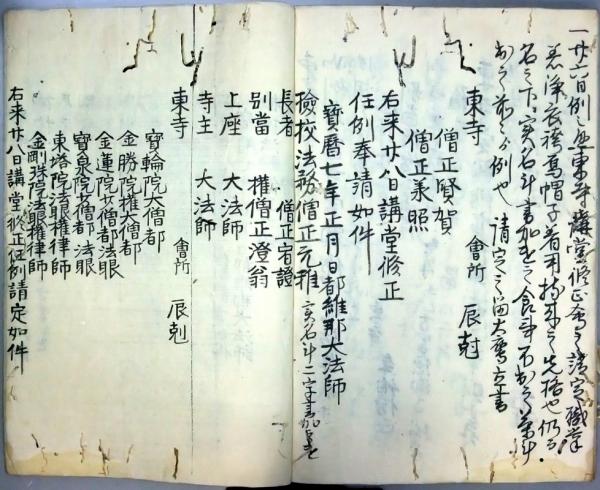 一廿六日例之通東寺講堂修正會之請定職掌
着浄衣裃烏帽子着用持来之先格也仍而
名之下ニ実名斗書加之
出之前之例也 請定之留
東寺 會所 辰尅
僧正賢賀
僧正兼照
右来廿八日講堂修正
任例奉請如件
寳暦七年正月日都維那大法師
儉校法務僧正元雅 実名斗二字書加
長者 僧正宥證
別當 權僧正澄翁
上座 大法師
寺主 大法師
東寺 會所 辰尅
寳輪院大僧都
金勝院權大僧都
金蓮院少僧都法眼
寳泉院少僧都法眼
東塔院法眼權律師
金剛珠院法眼權律師
右来廿八日講堂修正任例請定如件